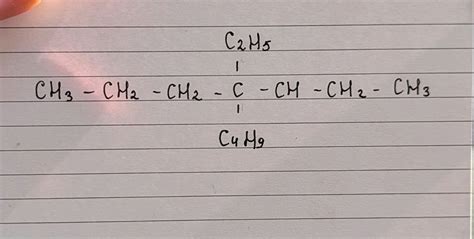 C2H5
CH3 - CH2 - CH2 - C - CH - CH2 - CH3
C4H9